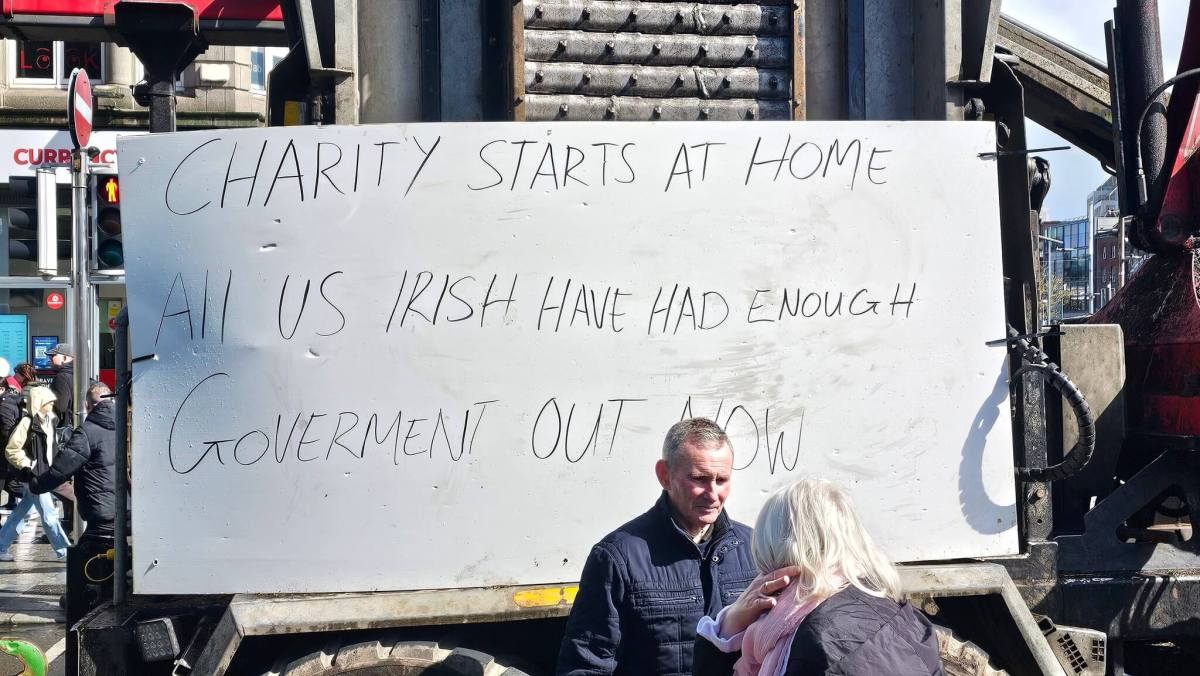 CHARITY STARTS AT HOME
All US IRISH HAVE HAD ENOUGH
GOVERMENT OUT NOW
CURRENCY